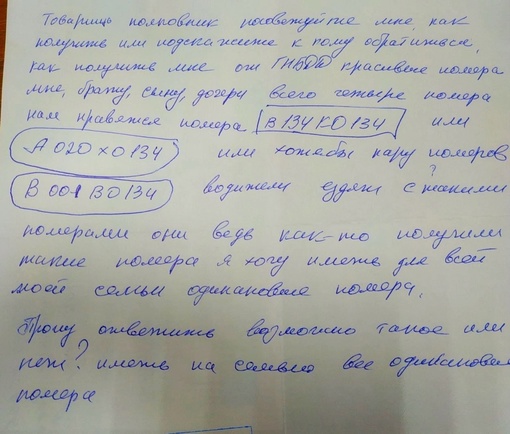 Товарищь полковник посоветуйте мне, как
получить или подскажите к кому обратиться,
как получить мне от ГИБДД красивые номера
мне, брату, сыну, дочери всего четыре номера
нам нравятся номера В 134 КО 134 или
А 020 ХО 134 или хотябы пару номеров
В 001 ВО 134 водители ездят с такими?
номерами они ведь как-то получили
такие номера я хочу иметь для всей
моей семьи одинаковые номера.
Прошу ответить возможно такое или
нет? иметь на семью все одинаковые
номера